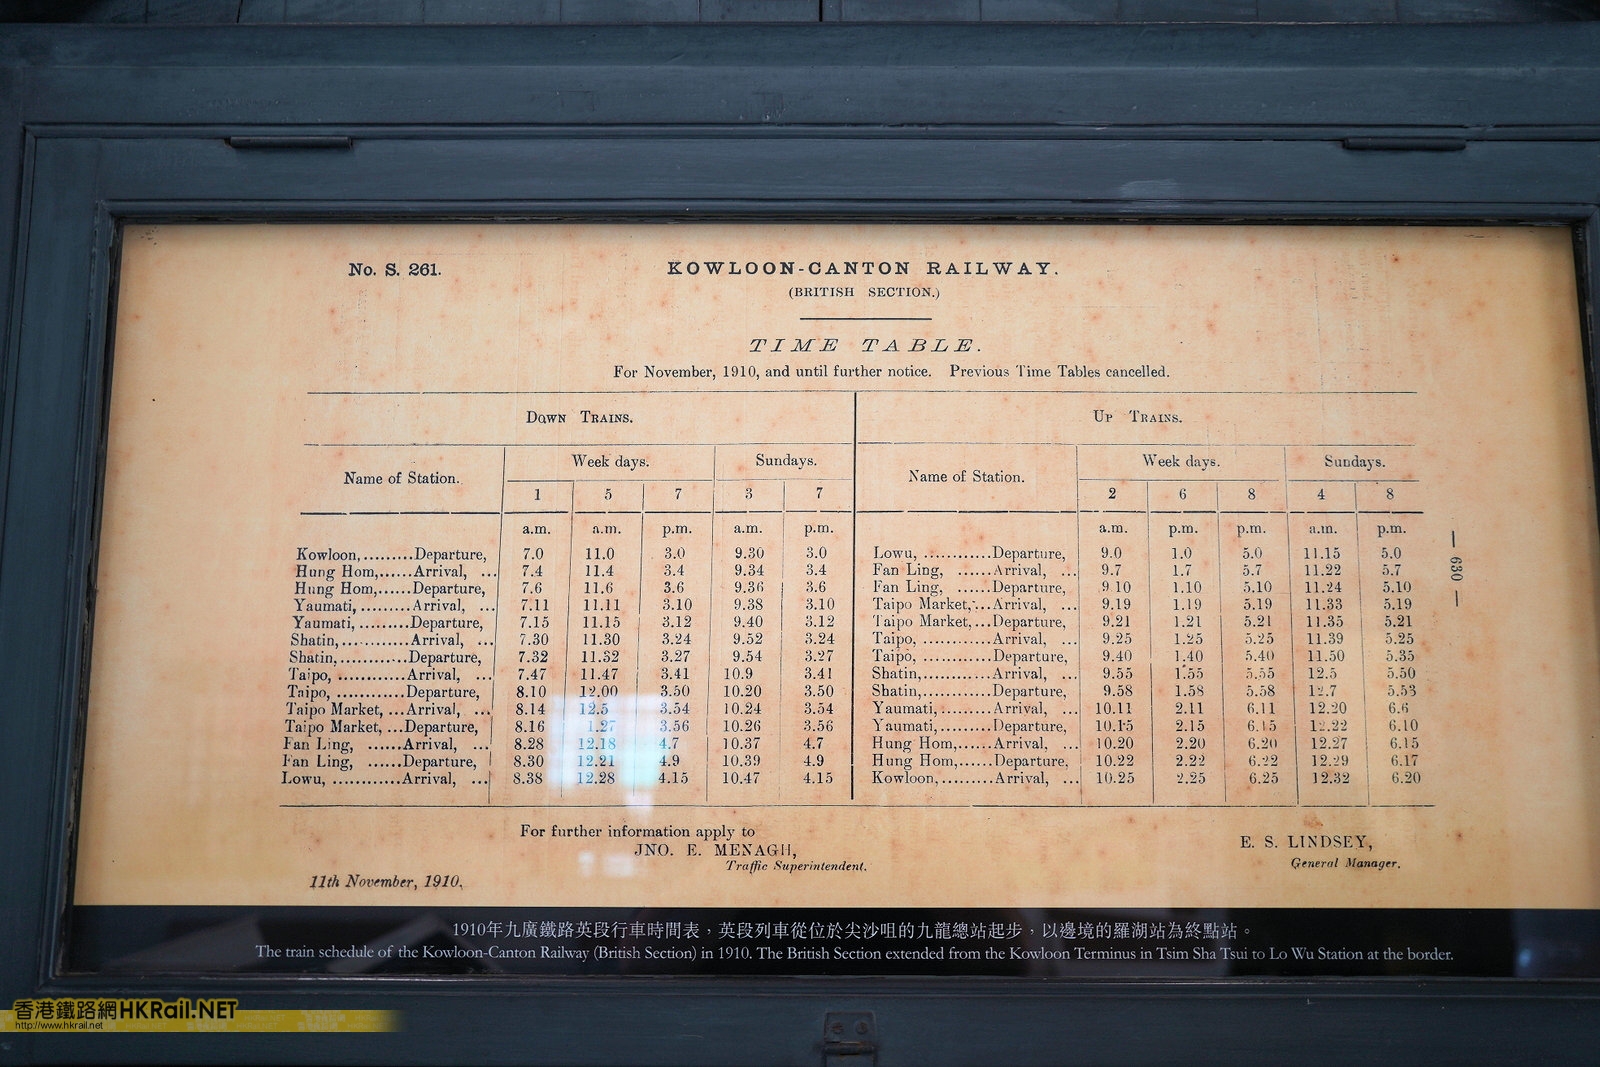 No. S. 261.
KOWLOON-CANTON RAILWAY.
(BRITISH SECTION.)
TIME TABLE.
For November, 1910, and until further notice. Previous Time Tables cancelled.
Down Trains. Up Trains.
Name of Station. Week days. Sundays. Name of Station. Week days. Sundays.
1 5 7 3 7 2 6 8 4 8
a.m. a.m. p.m. a.m. p.m. a.m. p.m. p.m. a.m. p.m.
Kowloon,.........Departure, 7.0 11.0 3.0 9.30 3.0 Lowu, ............Departure, 9.0 1.0 5.0 11.15 5.0
Hung Hom,......Arrival, ... 7.4 11.4 3.4 9.34 3.4 Fan Ling, ......Arrival, ... 9.7 1.7 5.7 11.22 5.7
Hung Hom,......Departure, 7.6 11.6 3.6 9.36 3.6 Fan Ling, ......Departure, 9.10 1.10 5.10 11.24 5.10
Yaumati, .........Arrival, ... 7.11 11.11 3.10 9.38 3.10 Taipo Market,...Arrival, ... 9.19 1.19 5.19 11.33 5.19
Yaumati, .........Departure, 7.15 11.15 3.12 9.40 3.12 Taipo Market,...Departure, 9.21 1.21 5.21 11.35 5.21
Shatin,............Arrival, ... 7.30 11.30 3.24 9.52 3.24 Taipo, ............Arrival, ... 9.25 1.25 5.25 11.39 5.25
Shatin,............Departure, 7.32 11.32 3.27 9.54 3.27 Taipo, ............Departure, 9.40 1.40 5.40 11.50 5.35
Taipo, ............Arrival, ... 7.47 11.47 3.41 10.9 3.41 Shatin,............Arrival, ... 9.55 1.55 5.55 12.5 5.50
Taipo, ............Departure, 8.10 12.00 3.50 10.20 3.50 Shatin,............Departure, 9.58 1.58 5.58 12.7 5.53
Taipo Market, ...Arrival, ... 8.14 12.5 3.54 10.24 3.54 Yaumati,.........Arrival, ... 10.11 2.11 6.11 12.20 6.6
Taipo Market, ...Departure, 8.16 1.27 3.56 10.26 3.56 Yaumati,.........Departure, 10.15 2.15 6.15 12.22 6.10
Fan Ling, ......Arrival, ... 8.28 12.18 4.7 10.37 4.7 Hung Hom,......Arrival, ... 10.20 2.20 6.20 12.27 6.15
Fan Ling, ......Departure, 8.30 12.21 4.9 10.39 4.9 Hung Hom,......Departure, 10.22 2.22 6.22 12.29 6.17
Lowu, ............Arrival, ... 8.38 12.28 4.15 10.47 4.15 Kowloon,.........Arrival, ... 10.25 2.25 6.25 12.32 6.20
— 630 —
For further information apply to
JNO. E. MENAGH,
Traffic Superintendent.
E. S. LINDSEY,
General Manager.
11th November, 1910.
1910年九廣鐵路英段行車時間表，英段列車從位於尖沙咀的九龍總站起步，以邊境的羅湖站為終點站。
The train schedule of the Kowloon-Canton Railway (British Section) in 1910. The British Section extended from the Kowloon Terminus in Tsim Sha Tsui to Lo Wu Station at the border.
香港鐵路網HKRail.NET
http://www.hkrail.net